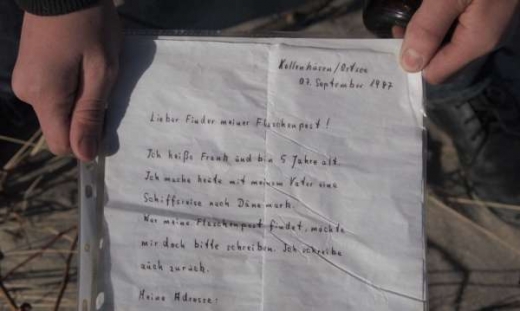 Kellenhusen/Ostsee
07. September 1987
Lieber Finder meiner Flaschenpost!
Ich heiße Frank und bin 5 Jahre alt.
Ich mache heute mit meinem Vater eine
Schiffsreise nach Dänemark.
Wer meine Flaschenpost findet, möchte
mir doch bitte schreiben. Ich schreibe
auch zurück.
Meine Adresse: